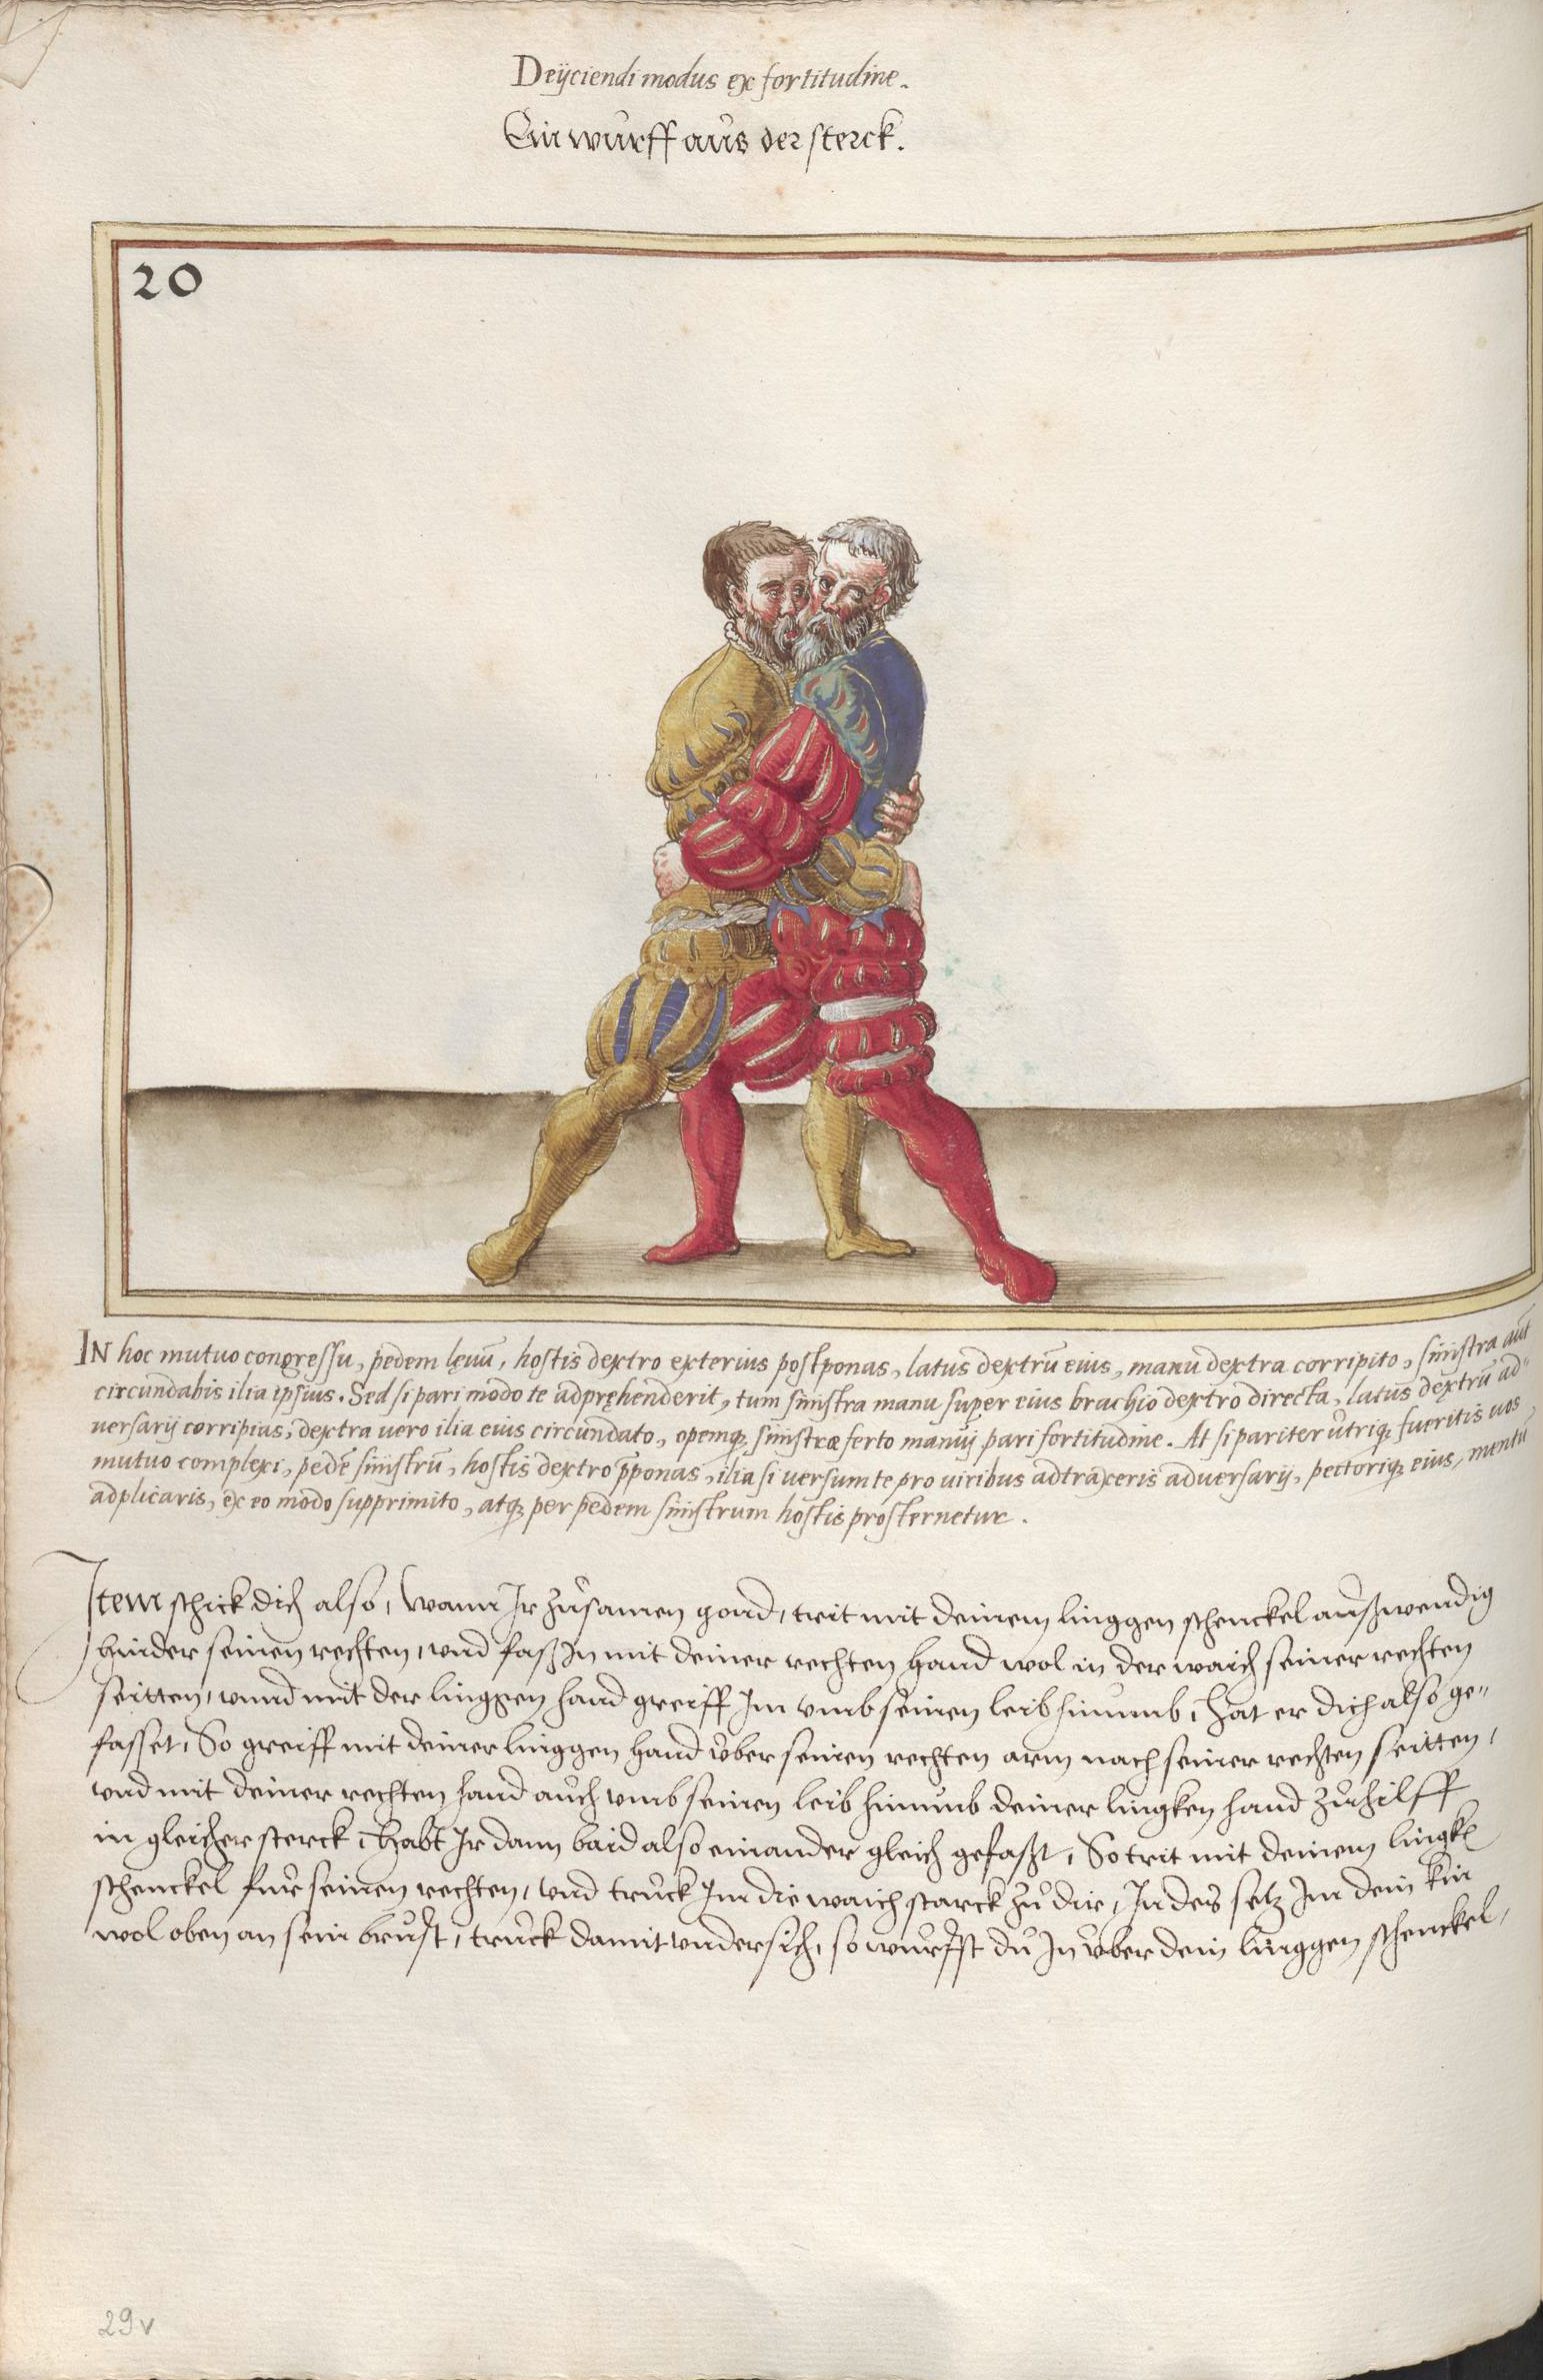 Deijciendi modus ex fortitudine.
Ein wurff aus der sterck.
20
IN hoc mutuo congressu, pedem lęuū, hostis dextro exterius postponas, latus dextrū eius, manu dextra corripito, sinistra aūt
circundabis ilia ipsius. Sed si pari modo te adpręhenderit, tum sinistra manu super eius brachio dextro directa, latus dextrū ad"
uersarij corripias, dextra uero ilia eius circundato, opemq; sinistræ ferto manuj pari fortitudine. At si pariter utriq; fueritis uos
mutuo complexi, pedē sinistrū, hostis dextro p̄ponas, ilia si uersum te pro uiribus adtraxeris aduersarij, pectoriq; eius, mentū
adplicaris, ex eo modo supprimito, atq; per pedem sinistrum hostis prosternetur.
Item schick dich also, Wann Ir zůsamen gond, trit mit deinem linggen schenckel außwendig
hinder seinen rechten, vnd faß In mit deiner rechten hand wol in der waich seiner rechten
seitten, vnnd mit der linggen hand greiff Im vmb seinen leib hinumb, hat er dich also ge"
fasset, So greiff mit deiner linggen hand über seinen rechten arm nach seiner rechten seitten,
vnd mit deiner rechten hand auch vmb seinen leib hinumb deiner lingken hand zůhilff
in gleicher sterck, Habt Ir dann baid also einander gleich gefaßt, So trit mit deinem lingkē
schenckel fur seinen rechten, vnd truck Im die waich starck zů dir, In des setz Im dein kin
wol oben an sein brust, truck damit vndersich, so wurffst du In über dein linggen schenckel,
29v